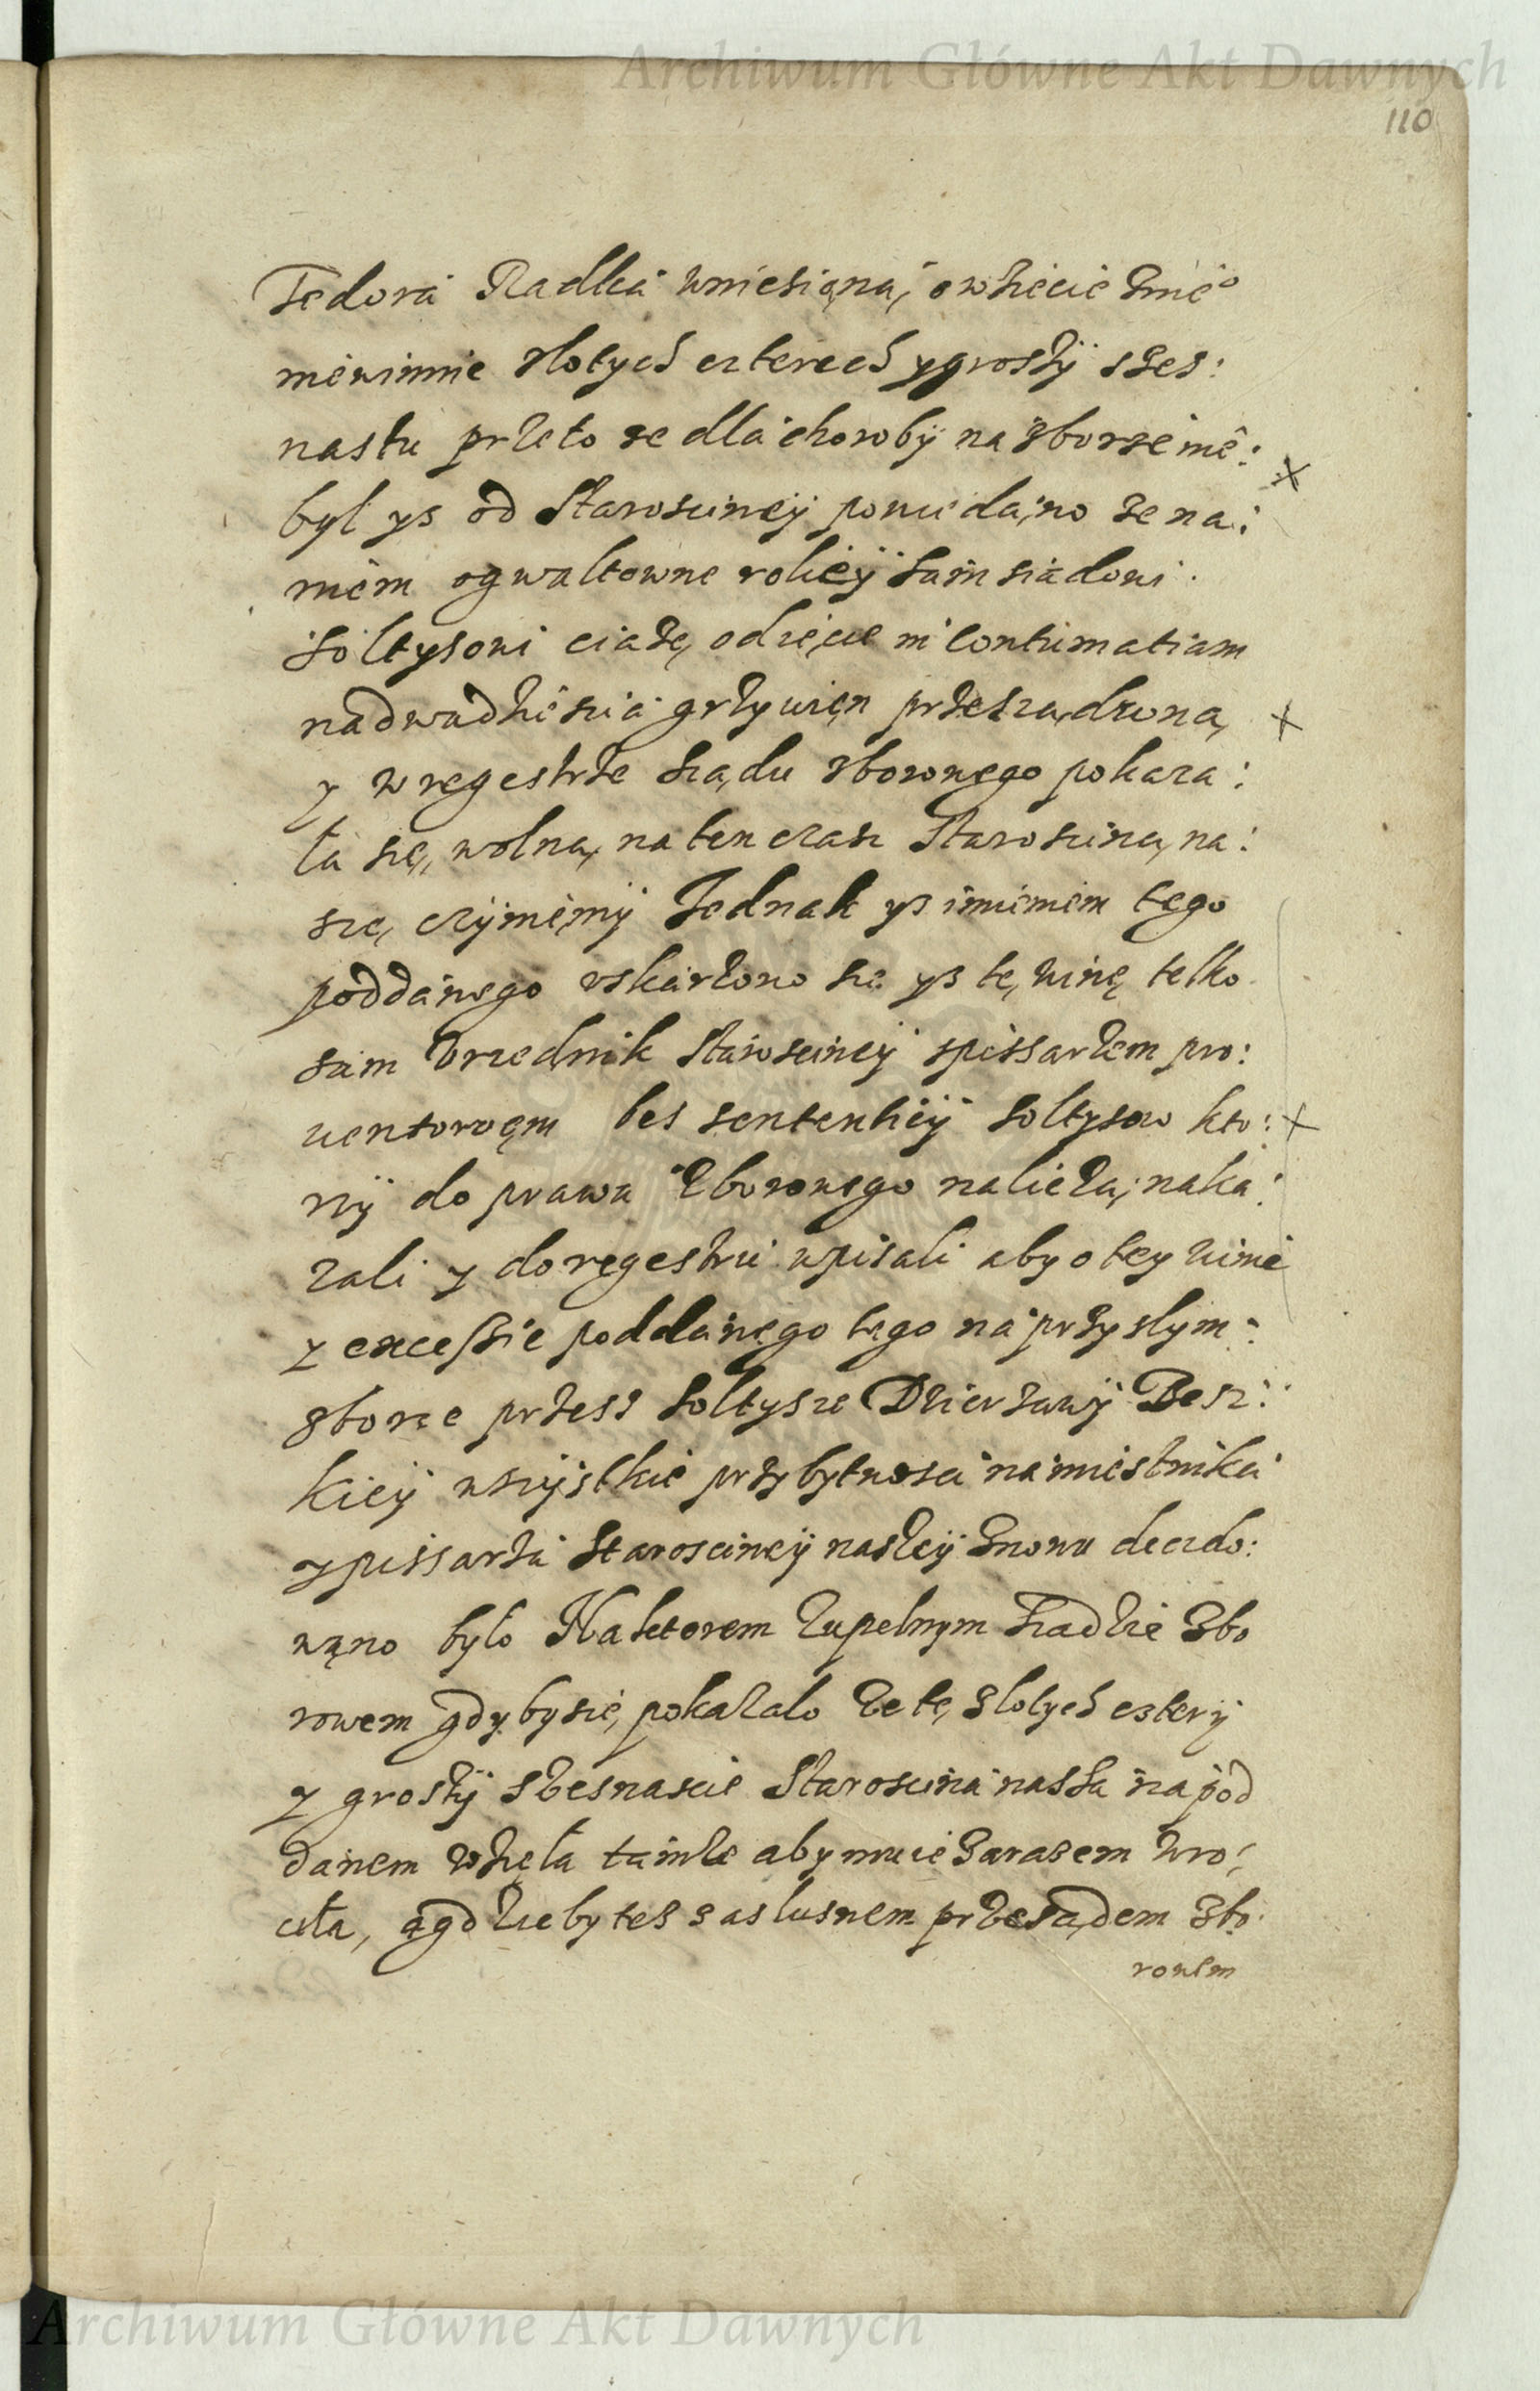 Archiwum Główne Akt Dawnych
110
Fedora Radka wniesiona, o wzięcie Snie°
niewinnie złotych czterech y groszÿ szes:
nastu przeto ze dla chorobÿ na zborze nie:
był ys od Staroscineÿ powiedaino ze na:
niem o gwałtowne roliéÿ sąmsiadowi
sołtysowi ciążę odzięcie in contumatiam
na dwadzieścia grzywien przesządzoną
y w regestrze sządu zborowego pokaza:
ła się, wolną na ten czasz Staroscinę na:
szę czÿniemÿ Jednak ys imieniem tego
poddanego uskarzono się ys tę winę telko
sam Urzednik Starosciney s pissarzem pro:
uentowęm bes sententiéÿ sołtysow kto:
rÿ do prawa Zborowego nalieżą, naka:
zali y do regestru wpisali aby o tey winie
y excessie poddanego tego na przyslym:
zborze przess sołtysze Dzierzawÿ Besz:
kieÿ wszÿstkie przy bytnosci namiestnika
y pissarza Starosciney naszeÿ Znowu decido:
wąno było Na ktorem Zupełnym sządzie Zbo
rowem gdyby się pokazało że tę złotych czterÿ
y groszÿ szesnascie Staroscina nassa na pod
danem wzięła tamże aby mu ie zarazem wro:
ciła, a gdzieby tes za słusnem przesądem zbo:
rowem
Archiwum Główne Akt Dawnych